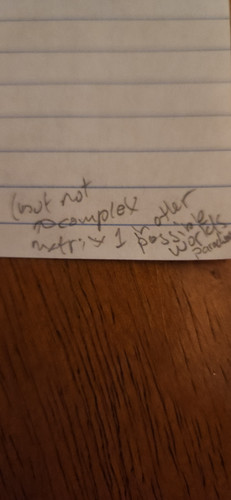 (but not
complex in other
matrix 1 possible
worlds